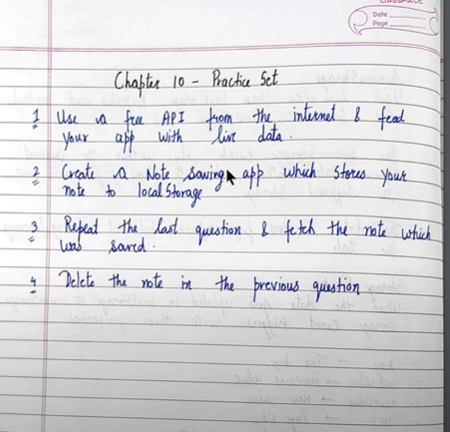 CLASSMATE
Date
Page
Chapter 10 - Practice Set
1 Use a free API from the internet & feed
your app with live data.
2 Create a Note saving app which stores your
note to localStorage
3 Repeat the last question & fetch the note which
was saved.
4 Delete the note in the previous question